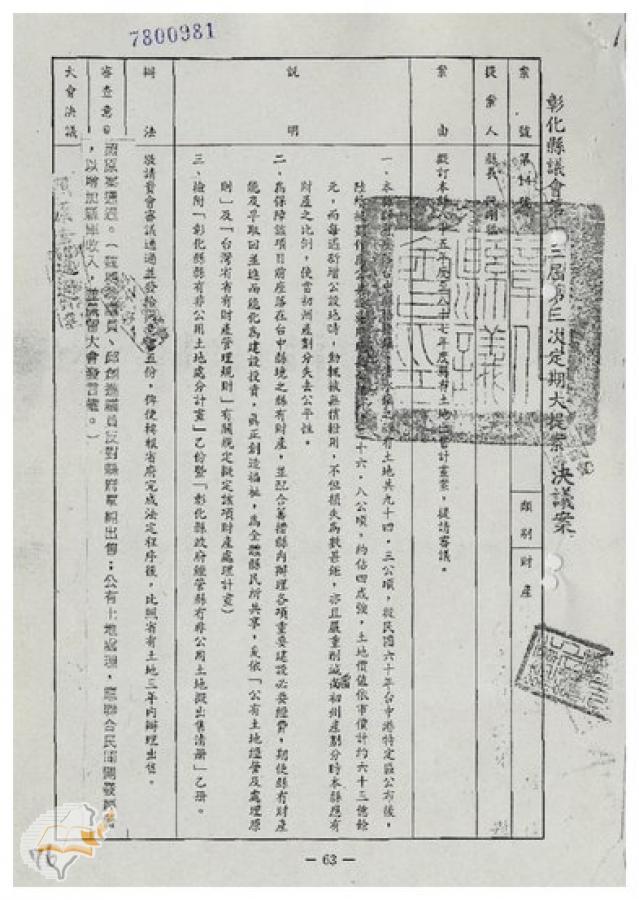 7800981
彰化縣議會第三屆第三次定期大提案決議案
案號
第14號
類別
財產
提案人
縣長
案由
擬訂本縣八十五年度至八十七年度縣有土地出售計畫案,提請審議。
說明
土地共九十四.三公頃,從民國六十年台中港特定區公布後,
陸續被劃作 十六.八公頃,約佔四成強,土地價值依市價計約六十三億餘
元,而每遇新增公設地時,動輒被無償撥用,不但損失為數甚鉅,亦且嚴重削減當初州產劃分時本縣應有
財產之比例,使當初州產劃分失去公平性。
二、為保障該項目前座落在台中縣境之縣有財產,並配合籌措縣內辦理各項重要建設必要經費,期使縣有財產
能及早取回並進而能化為建設投資,真正創造福祉,為全體縣民所共享,爰依「公有土地經營及處理原
則」及「台灣省省有財產管理規則」有關規定擬定該項財產處理計畫)
三、檢附「彰化縣縣有非公用土地處分計畫」乙份暨「彰化縣政府經管縣有非公用土地擬出售清冊」乙冊。
辦法
敬請貴會審議通過並發給 五份,俾便轉報省府完成法定程序後,比照省有土地三年內辦理出售。
審查意見
照原案通過。( 議員、邱創進議員反對縣府單純出售;公有土地處理,應聯合民間開發
,以增加縣庫收入,並保留大會發言權。)
大會決議
— 63 —
76